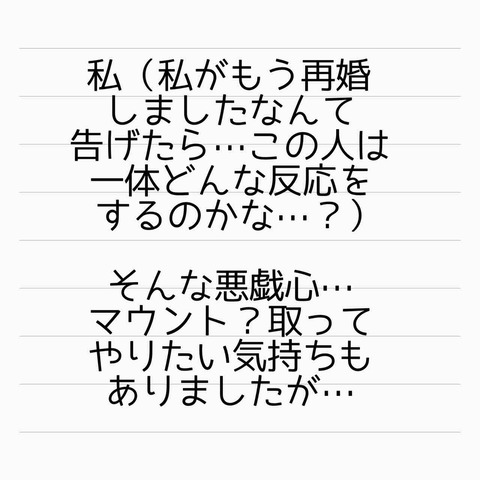 私（私がもう再婚
しましたなんて
告げたら…この人は
一体どんな反応を
するのかな…？）
そんな悪戯心…
マウント？取って
やりたい気持ちも
ありましたが…